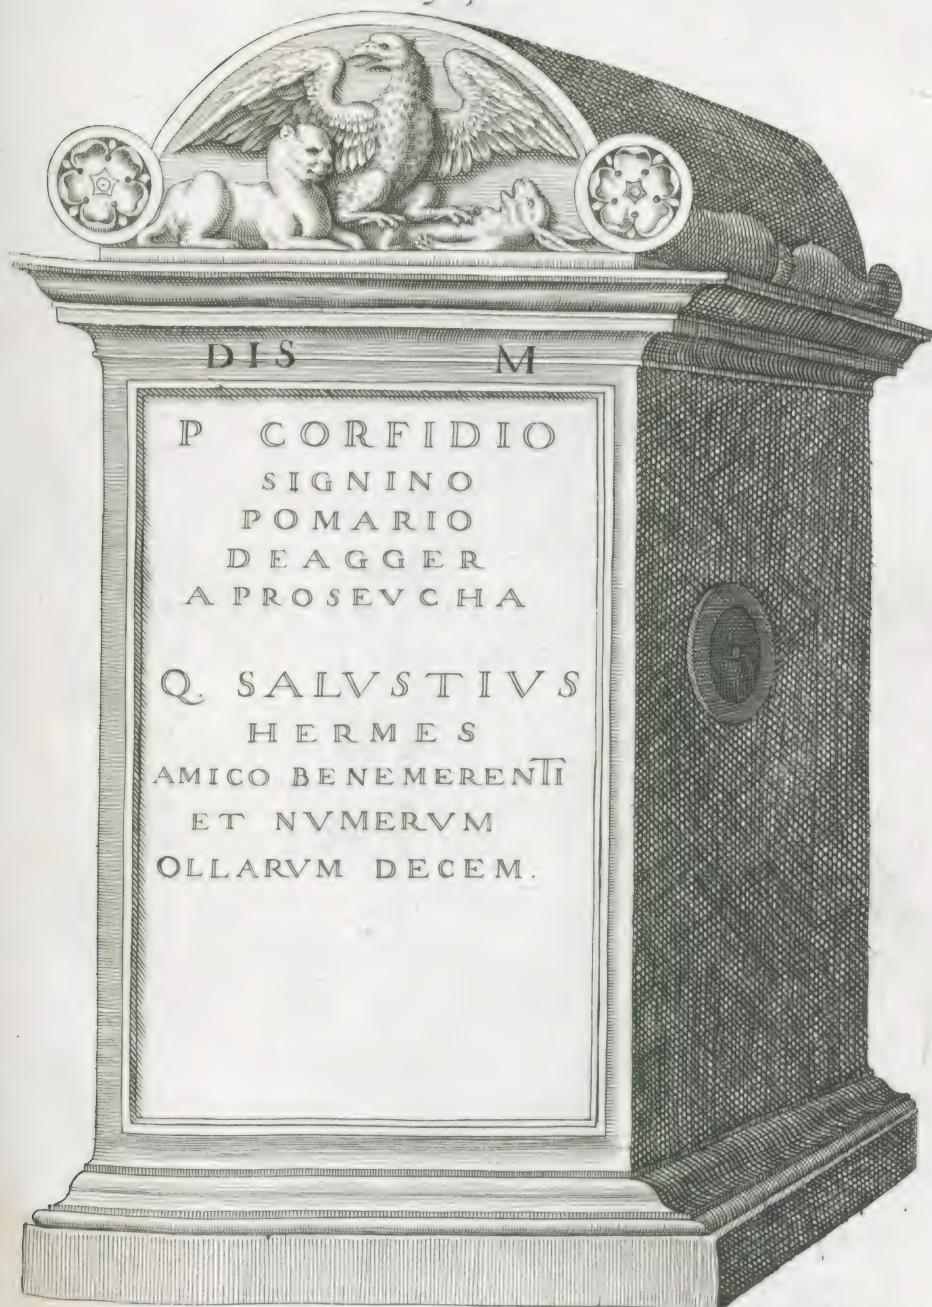 DIS M
P CORFIDIO
SIGNINO
POMARIO
DEAGGER
A PROSEVCHA
Q. SALVSTIVS
HERMES
AMICO BENEMERENTI
ET NVMERVM
OLLARVM DECEM.